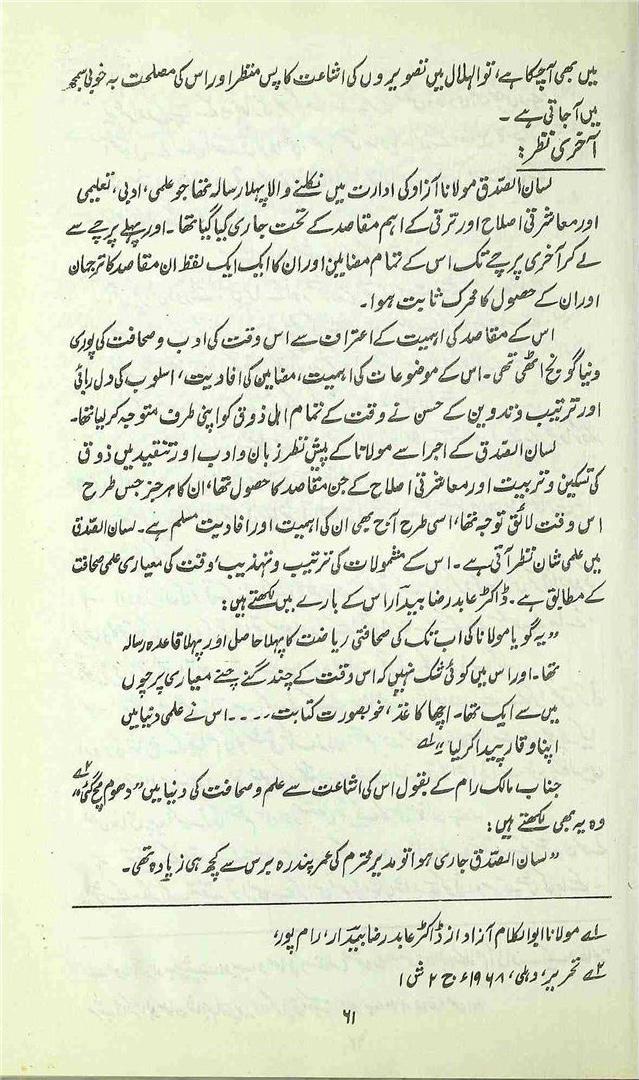 میں بھی آچکا ہے، تو الہلال میں تصویروں کی اشاعت کا پس منظر اور اس کی مصلحت بہ خوبی سمجھ
میں آجاتی ہے۔
آخری نظر:
لسان الصّدق مولانا آزاد کی ادارت میں نکلنے والا پہلا رسالہ تھا جو علمی، ادبی، تعلیمی
اور معاشرتی اصلاح اور ترقی کے اہم مقاصد کے تحت جاری کیا گیا تھا۔ اور پہلے پرچے سے
لے کر آخری پرچے تک اس کے تمام مضامین اور ان کا ایک ایک لفظ ان مقاصد کا ترجمان
اور ان کے حصول کا محرک ثابت ہوا۔
اس کے مقاصد کی اہمیت کے اعتراف سے اس وقت کی ادب و صحافت کی پوری
دنیا گونج اٹھی تھی۔ اس کے موضوعات کی اہمیت، مضامین کی افادیت، اسلوب کی دل ربائی
اور ترتیب و تدوین کے حسن نے وقت کے تمام اہل ذوق کو اپنی طرف متوجہ کرلیا تھا۔
لسان الصّدق کے اجرا سے مولانا کے پیش نظر زبان و ادب اور تنقید میں ذوق
کی تسکین و تربیت اور معاشرتی اصلاح کے جن مقاصد کا حصول تھا، ان کا ہر جز جس طرح
اس وقت لائق توجہ تھا، اسی طرح آج بھی ان کی اہمیت اور افادیت مسلم ہے۔ لسان الصّدق
میں علمی شان نظر آتی ہے۔ اس کے مشمولات کی ترتیب و تہذیب، وقت کی معیاری علمی صحافت
کے مطابق ہے۔ ڈاکٹر عابد رضا بیدار اس کے بارے میں لکھتے ہیں:
”یہ گویا مولانا کی اب تک کی صحافتی ریاضت کا پہلا حاصل اور پہلا قاعدہ رسالہ
تھا۔ اور اس میں کوئی شک نہیں کہ اس وقت کے چند گنے چنے معیاری پرچوں
میں سے ایک تھا۔ اچھا کاغذ، خوبصورت کتابت۔۔۔۔ اس نے علمی دنیا میں
اپنا وقار پیدا کر لیا“ ۱؎
جناب مالک رام کے بقول اس کی اشاعت سے علم و صحافت کی دنیا میں ”دھوم مچ گئی“ ۲؎
وہ یہ بھی لکھتے ہیں:
”لسان الصّدق جاری ہوا تو مدیر محترم کی عمر پندرہ برس سے کچھ ہی زیادہ تھی۔
۱؎ مولانا ابوالکلام آزاد از ڈاکٹر عابد رضا بیدار، رام پور،
۲؎ تحریر، دہلی، ۱۹۶۸ء، ج ۲ ش ۱
۶۱